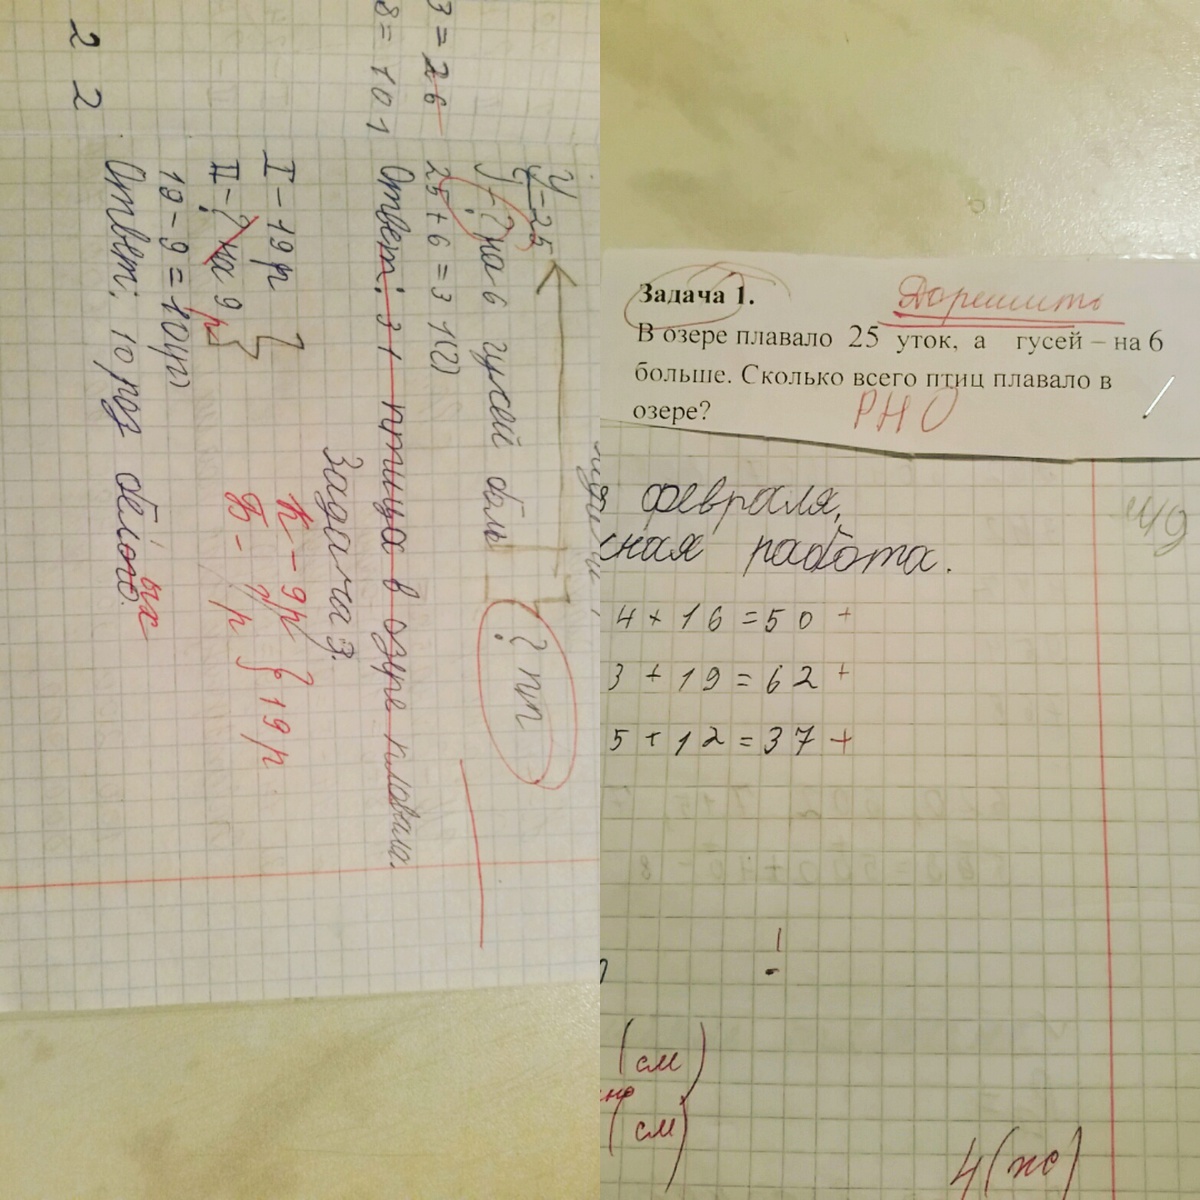 3 = 26
8 = 101
2 2
У
У - 25
У - ? на 6 гусей боль
? пт
25 + 6 = 31(г)
Ответ: 31 птица в озре пловало.
Задача 3.
I - 19 р
II - ? на 9 р
К - 9 р
Б - ? р } 19 р
19 - 9 = 10(р)
Ответ: 10 роз белого.
ых
Задача 1.
Дорешить
В озере плавало 25 уток, а гусей – на 6
больше. Сколько всего птиц плавало в
озере?
РНО
февраля,
сная работа.
4 + 16 = 50 +
3 + 19 = 62 +
5 + 12 = 37 +
(см)
(см)